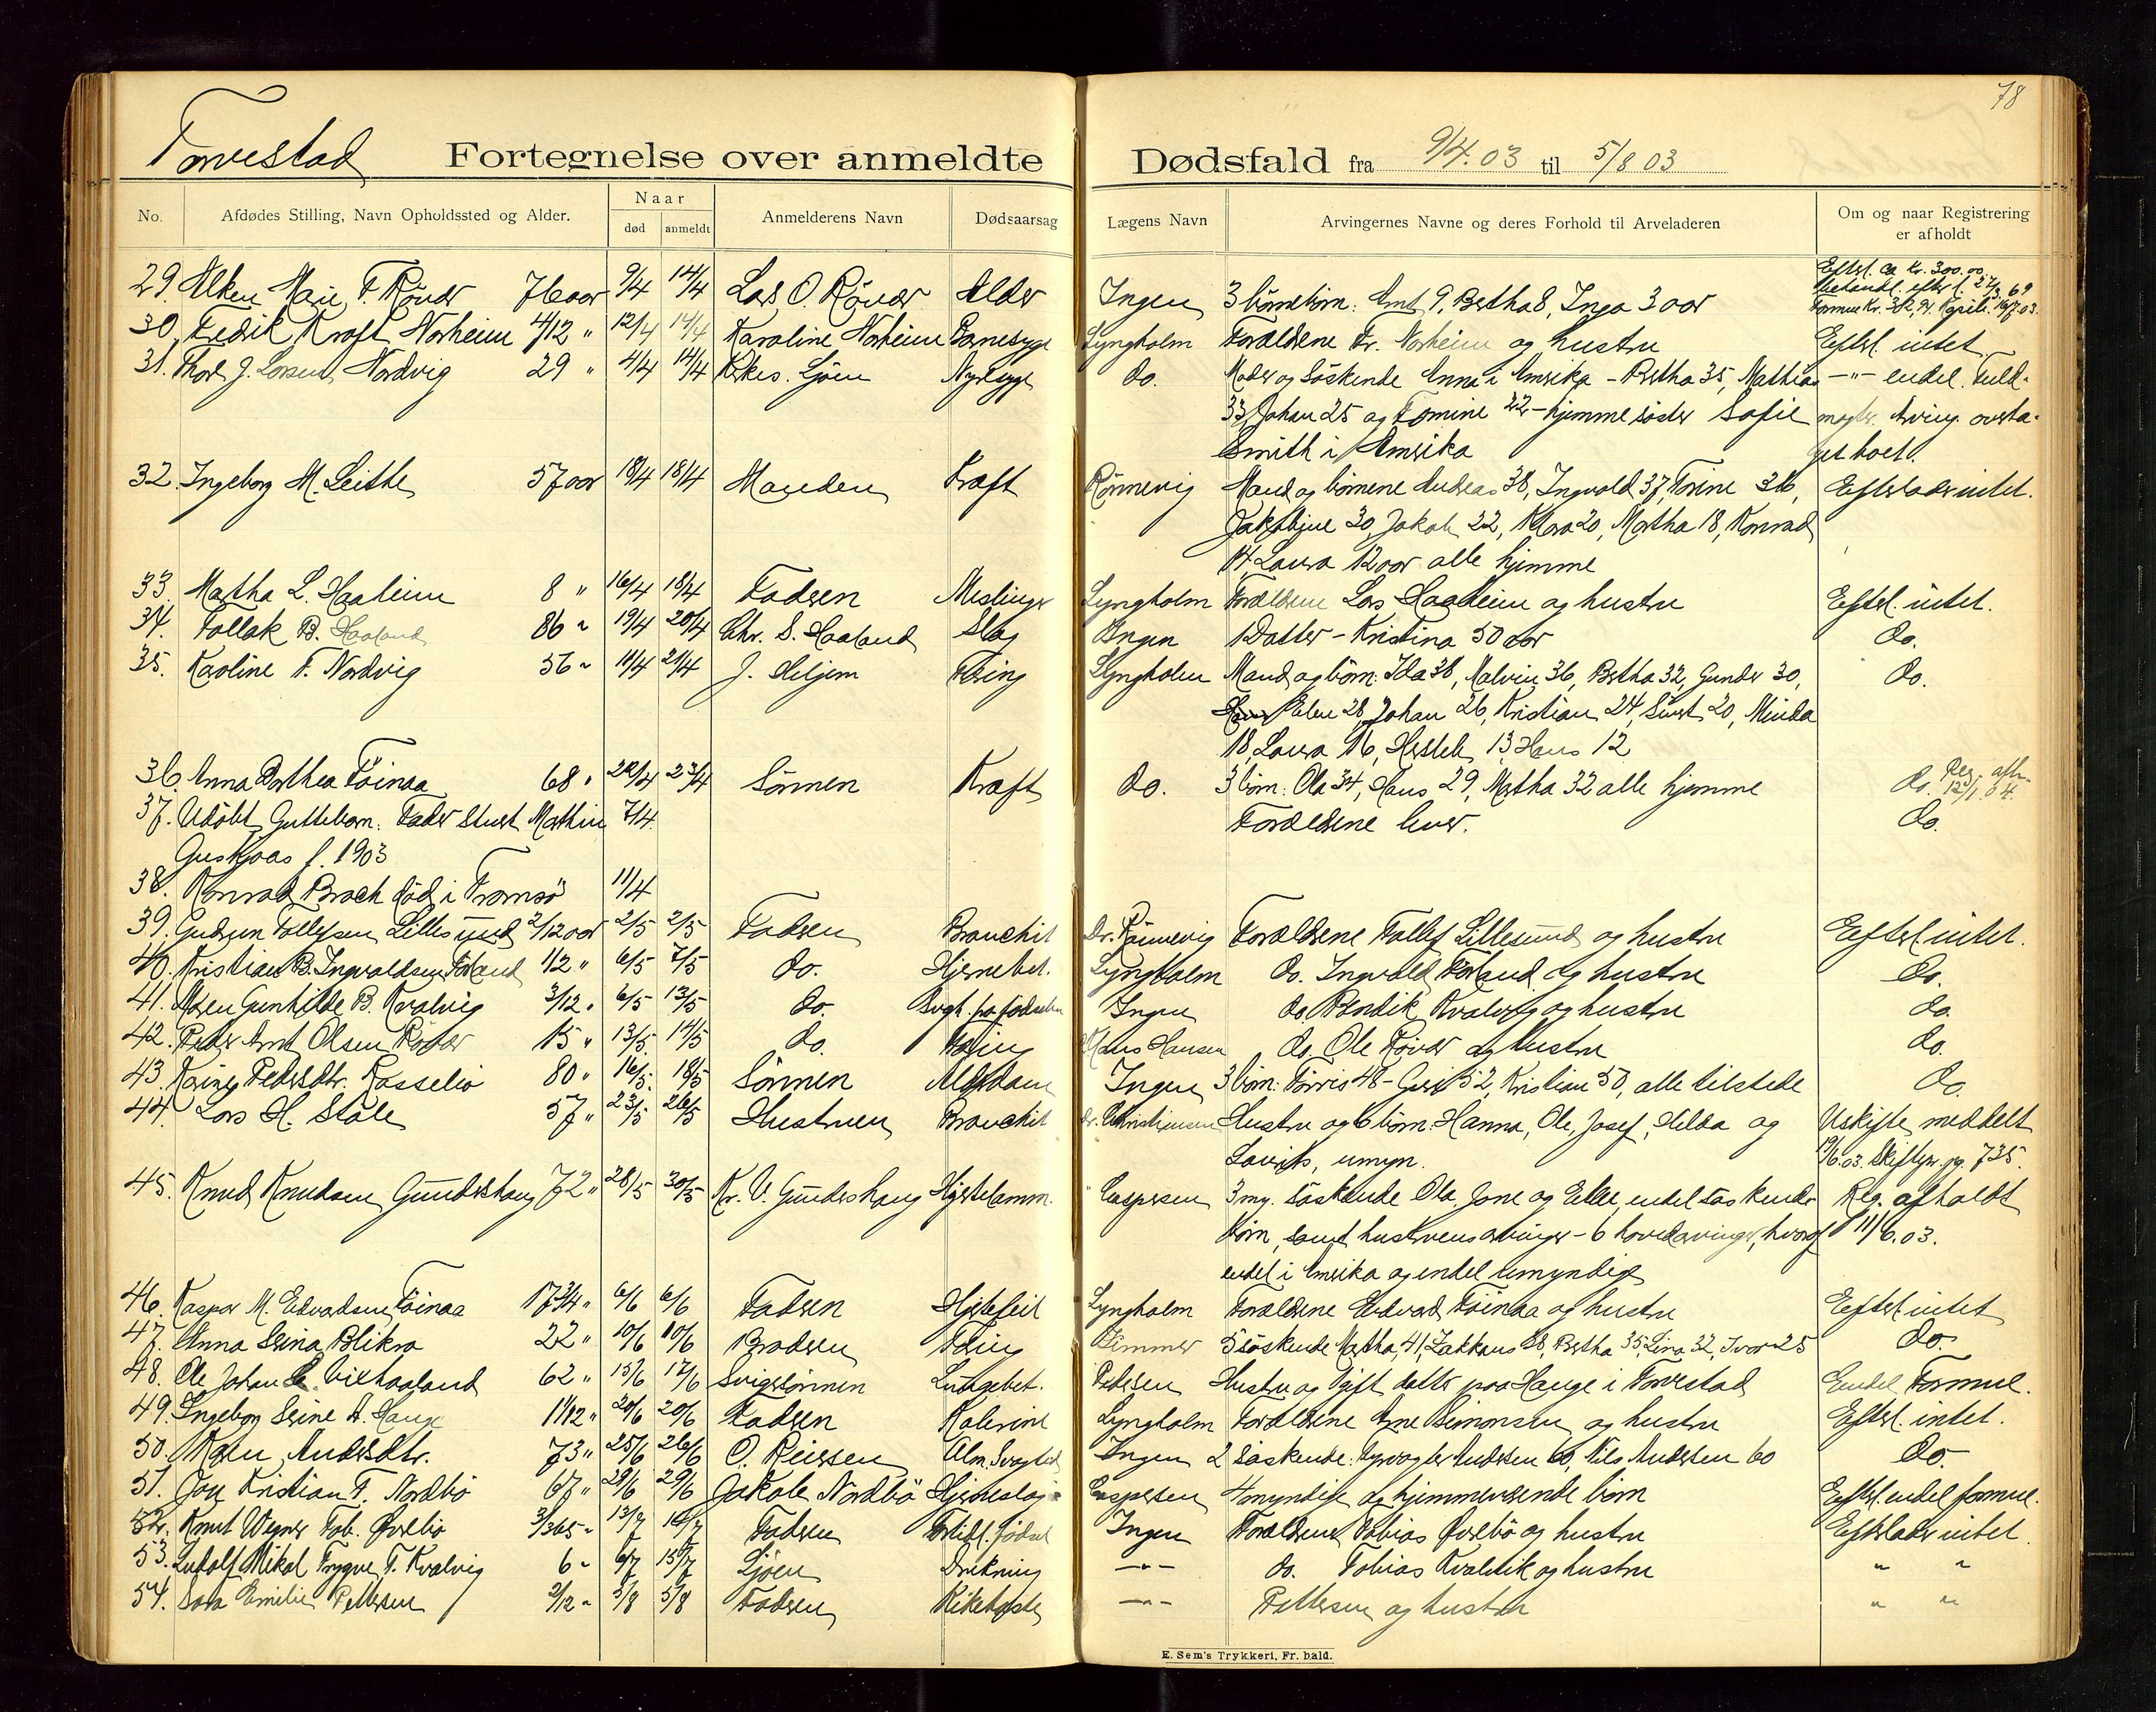 78
Torvestad Fortegnelse over anmeldte Dødsfald fra 9/4.03 til 5/8 03
No. Afdødes Stilling, Navn Opholdssted og Alder. Naar død anmeldt Anmelderens Navn Dødsaarsag Lægens Navn Arvingernes Navne og deres Forhold til Arveladeren Om og naar Registrering er afholdt
Efterl. ca Kr. 300.00
29. Marie T. Røvær 76 aar 9/4 14/4 Lars O. Røvær Alder Ingen 3 børnebørn: Amt 9, Bertha 8, Inga 3 aar
30. Fredrik Kraft Norheim 4/12 " 12/4 14/4 Karoline Norheim Barnesyge Lyngholm Forældrene Fr. Norheim og hustru Efterl. intet.
31. Thore J. Larsen Nordvig 29 " 4/4 14/4 Nyresyge do. Moder og Søskende Anna i Amerika - Bertha 35, Mathias -"- endel. Fuld-
33, Johan 25 og Tomine 22 - hjemme søster Sofie arving. overta-
Smith i Amerika get boet.
32. Ingeborg M. Leithe 57 aar 18/4 18/4 Manden Kræft Rönnevig Mand og børnene Andreas 38, Ingvald 37, Torine 36, Efterlader intet.
30, Jakob 22, Klara 20, Martha 18, Konrad
14 Laura 12 aar alle hjemme
33. Martha L. Haaheim 8 " 16/4 18/4 Faderen Meslinger Lyngholm Forældrene Lars Haaheim og hustru Efterl. intet.
34. Tollak B. Haaland 86 " 19/4 20/4 Chr. S. Haaland Slag Ingen 1 Datter - Kristina 50 aar do.
35. Karoline T. Nordvig 56 " 11/4 21/4 J. Tæring Lyngholm Mand og børn: Ida 38, Malvin 36, Bertha 32, Gunder 30, do.
Elen 28, Johan 26, Kristian 24, Sivert 20, Minda
18, Laura 16, 13, Hans 12
36. Anna Dorthea Töinaa 68 " 22/4 23/4 Sønnen Kræft do. 3 børn: Ola 34, Hans 29, Martha 32 alle hjemme do. Reg. afh. 12/1.04.
37. Udøbt Guttebarn. Fader Sivert Mathin 7/4. Forældrene lever. do.
f. 1903
38. Konrad Brack død i Tromsö 11/4
39. Gudrun Tollefsen Lillesund 2/12 aar 2/5 2/5 Faderen Bronchit Dr. Rönnevig Forældrene Tollef Lillesund og hustru Efterl. intet.
40. Kristian B. Ingvaldsen Förland 1/2 " 6/5 7/5 do. Hjernebet. Lyngholm do. Ingvald Förland og hustru do.
41. Gunhilde B. Kvalvig 3/12 " 6/5 13/5 do. Ingen do. Bendik Kvalvig og hustru do.
42. Peder Amt Olsen Röver 15 " 13/5 14/5 do. Tæring Hans Hansen do. Ole Röver og Hustru do.
43. Pedersdtr. 80 " 16/5 18/5 Sønnen Alderdom Ingen 3 børn: Torris 48 - Guri 52, Kristian 50, alle tilstede do.
44. Lars H. Stole 57 " 23/5 26/5 Hustruen Bronchit Dr. Christiansen Hustru og 6 børn: Hanna, Ole, Josef, Hilda og Uskifte meddelt
Laurits, umyn. 19/6.03. Skiftepr. pg. 735.
45. Knud Knudsen Gundershaug 72 " 28/5 30/5 Kr. V. Gundershaug Hjertelamm. Caspersen 3 my. søskende Ola, Jone og Ellen, endel søskende- Reg. afholdt
børn, samt hustruens arvinger - 6 hovedarvinger, hvoraf 11/6.03.
endel i Amerika og endel umyndige
46. Kaspar M. Edvardsen Töinaa 17 3/4 " 6/6 6/6 Faderen Hjertefeil Lyngholm Forældrene Edvard Töinaa og hustru Efterl. intet
47. Anna Serina Blikra 22 " 10/6 10/6 Broderen Tæring Zimmer 5 søskende Martha, 41, Zakkaus 38, Bertha 35, Lina 32, Ivar 25 do.
48. Ole Johan 62 " 15/6 17/6 Svigersønnen Lungebet. Pedersen Hustru og 1 gift datter paa Hauge i Torvestad Endel Formue.
49. Ingeborg Serine A. Hauge 1 1/12 " 20/6 20/6 Faderen Kolerine Lyngholm Forældrene Arne Simonsen og hustru Efterl. intet.
50. Karen Andersdtr. 73 " 25/6 26/6 O. Reiersen Alm. Svaghed Ingen 2 søskende: Andersen 60, Nils Andersen 60 do.
51. Jon Kristian T. Nordbö 67 " 28/6 29/6 Jakob Nordbö Hjerneslag Caspersen 4 myndige og hjemmeværende börn Efterl. endel formue.
52. Knut Wegner Tob. Øvrebö 3/365 " 13/7 14/7 Faderen Fortidl. fødsel Ingen Forældrene Tobias Øvrebö og hustru Efterlader intet.
53. Ludolf Mikal Trygve T. Kvalvig 6 " 6/7 15/7 Sjøen Drukning -"- do. Tobias Kvalvik og hustru " "
54. Sara Emilie Pettersen 2/12 " 3/8 5/8 Faderen Kikhoste -"- Pettersen og hustru " "
E. Sem's Trykkeri, Fr. hald.